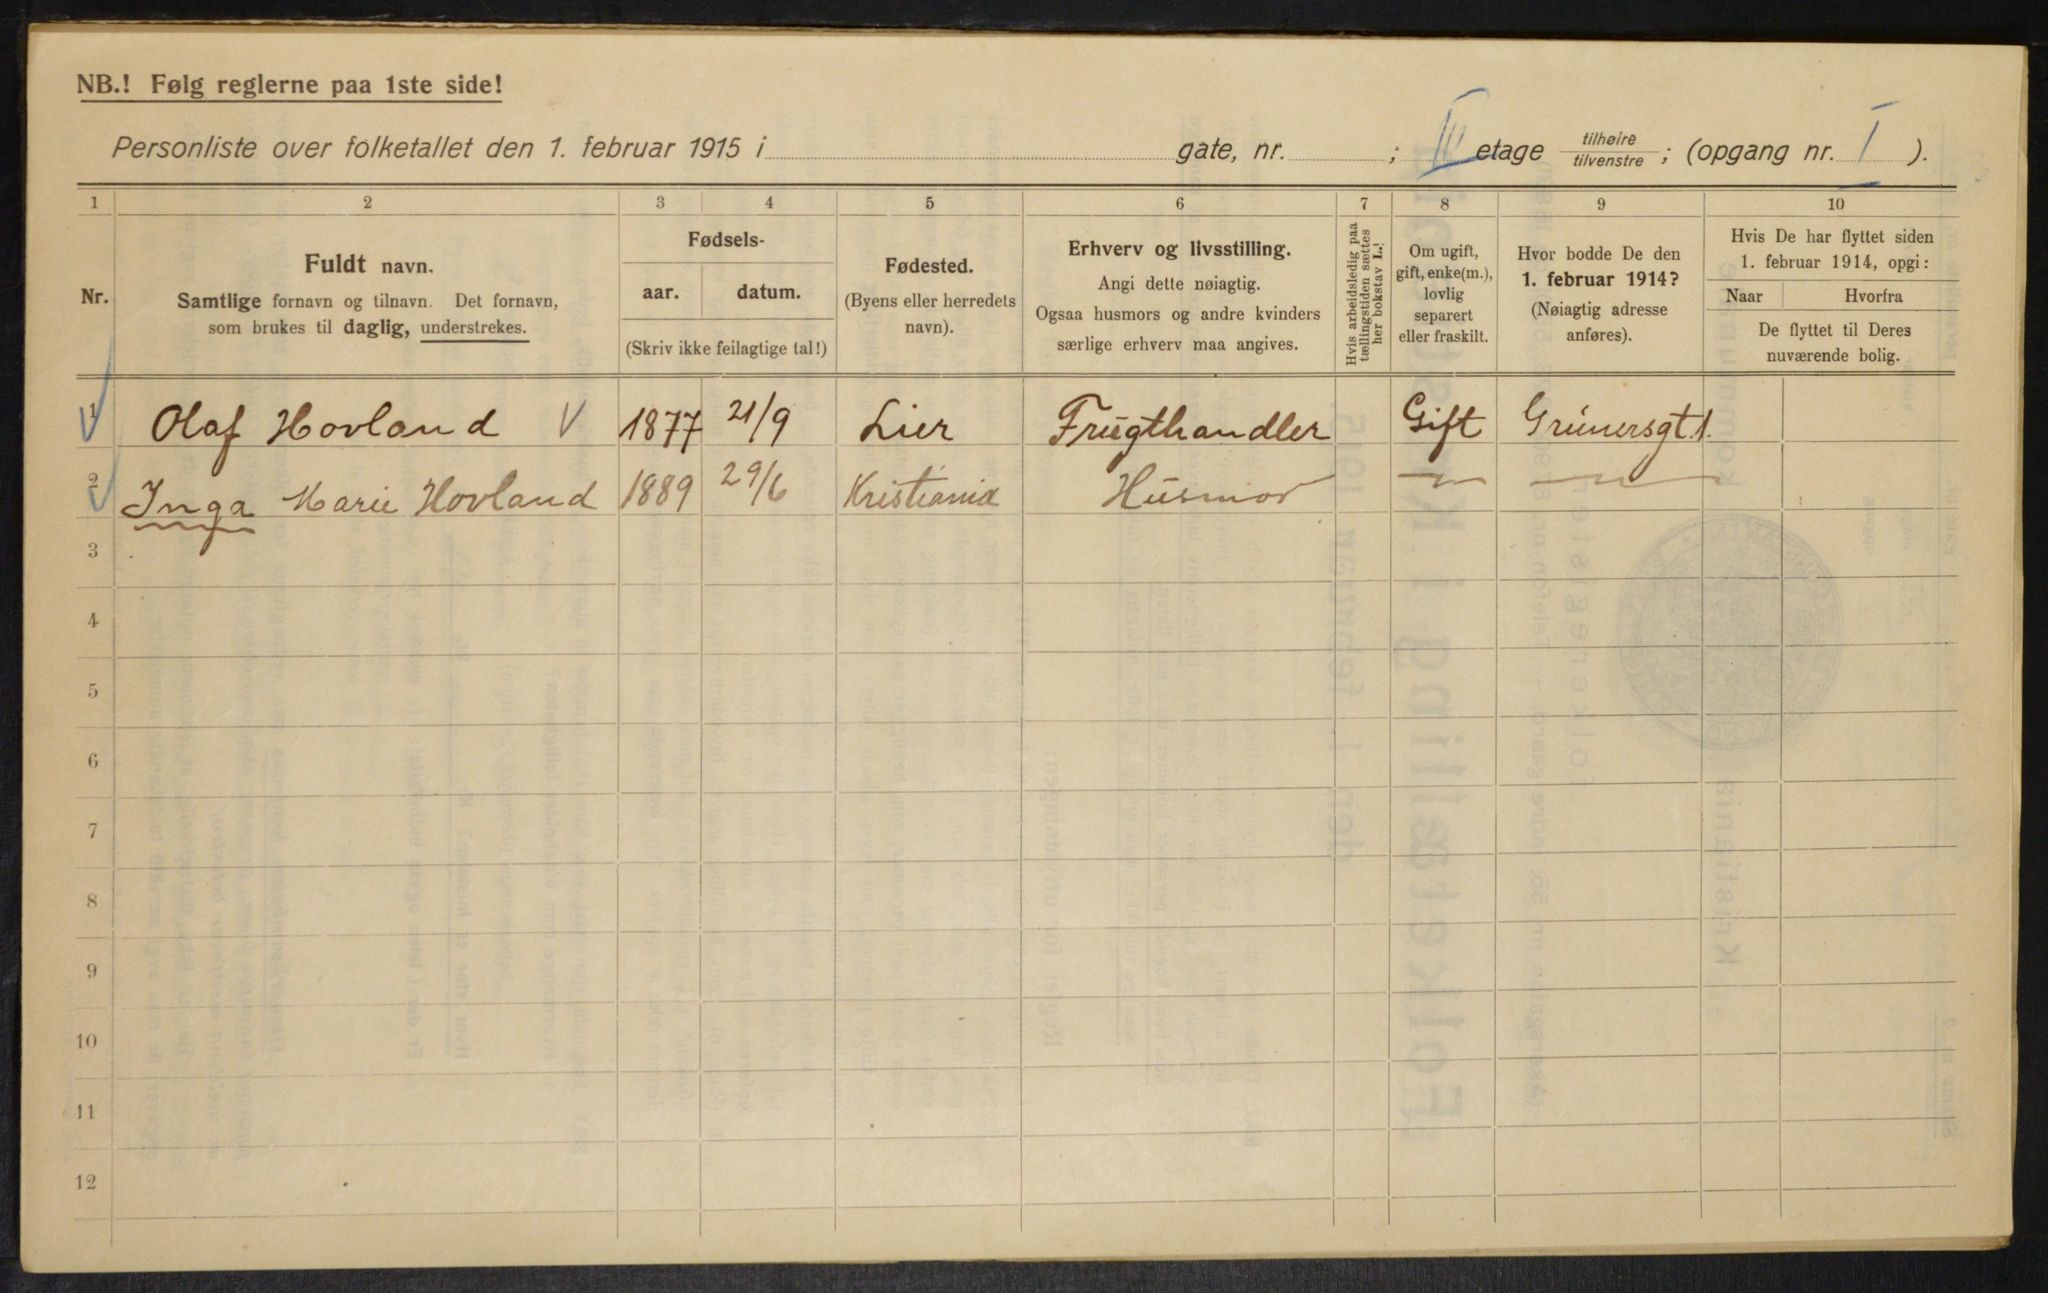 NB.! Følg reglerne paa 1ste side!
Personliste over folketallet den 1. februar 1915 i gate, nr. ; III etage tilhøire/tilvenstre ; (opgang nr. I ).
1 2 3 4 5 6 7 8 9 10
Nr.
Fuldt navn.
Samtlige fornavn og tilnavn. Det fornavn,
som brukes til daglig, understrekes.
Fødsels-
aar. datum.
(Skriv ikke feilagtige tal!)
Fødested.
(Byens eller herredets
navn).
Erhverv og livsstilling.
Angi dette nøiagtig.
Ogsaa husmors og andre kvinders
særlige erhverv maa angives.
Hvis arbeidsledig paa
tællingstiden sættes
her bokstav L.!
Om ugift,
gift, enke(m.),
lovlig
separert
eller fraskilt.
Hvor bodde De den
1. februar 1914?
(Nøiagtig adresse
anføres).
Hvis De har flyttet siden
1. februar 1914, opgi:
Naar Hvorfra
De flyttet til Deres
nuværende bolig.
1 Olaf Hovland V 1877 21/9 Lier Frugthandler Gift Grünersgt. 1.
2 Inga Marie Hovland 1889 29/6 Kristiania Husmor — —
3
4
5
6
7
8
9
10
11
12